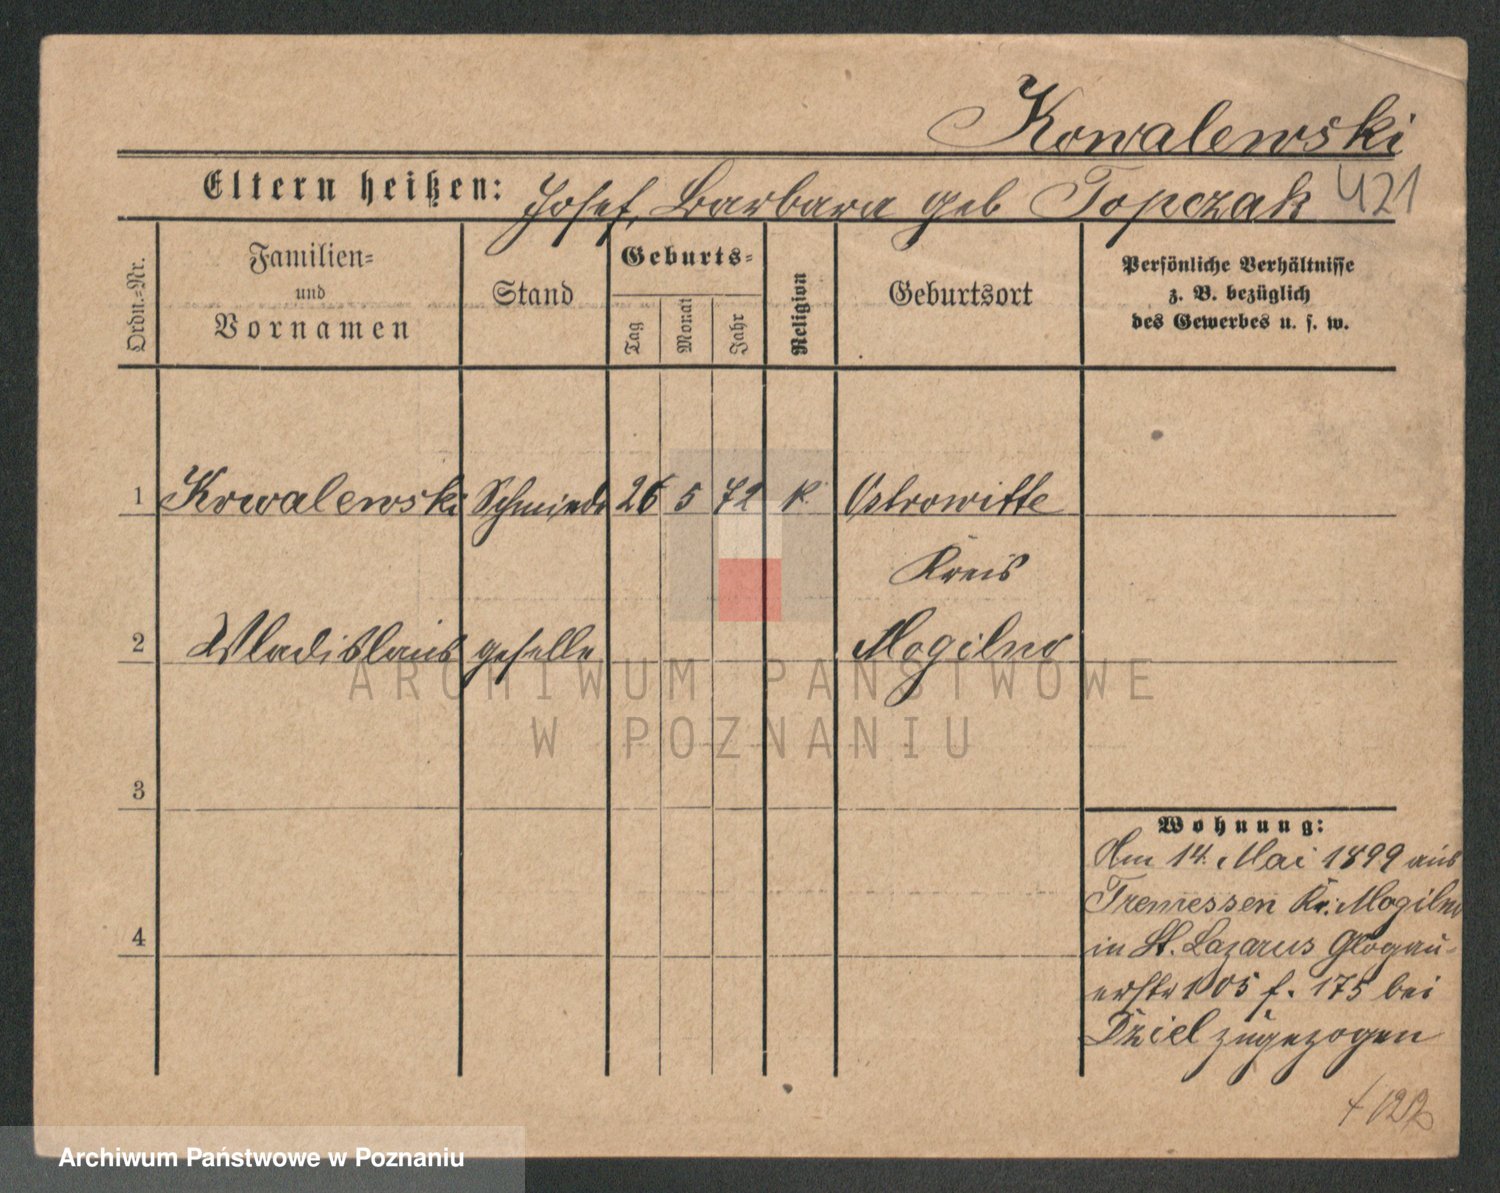 Kowalewski
Eltern heißen: Josef, Barbara geb Topczak 421
Ordn.-Nr.
Familien-
und
Vornamen
Stand
Geburts-
Tag
Monat
Jahr
Religion
Geburtsort
Persönliche Verhältnisse
z. B. bezüglich
des Gewerbes u. s. w.
1 Kowalewski Schmiede 26 5 72 k. Ostrowitte
Kreis
2 Wladislaus geselle Mogilno
ARCHIWUM PAŃSTWOWE
W POZNANIU
3
Wohnung:
Am 14. Mai 1899 aus
Tremessen Kr. Mogilno
4
in St. Lazarus Glogau-
erstr 105 f. 175 bei
Dziel zugezogen
Archiwum Państwowe w Poznaniu